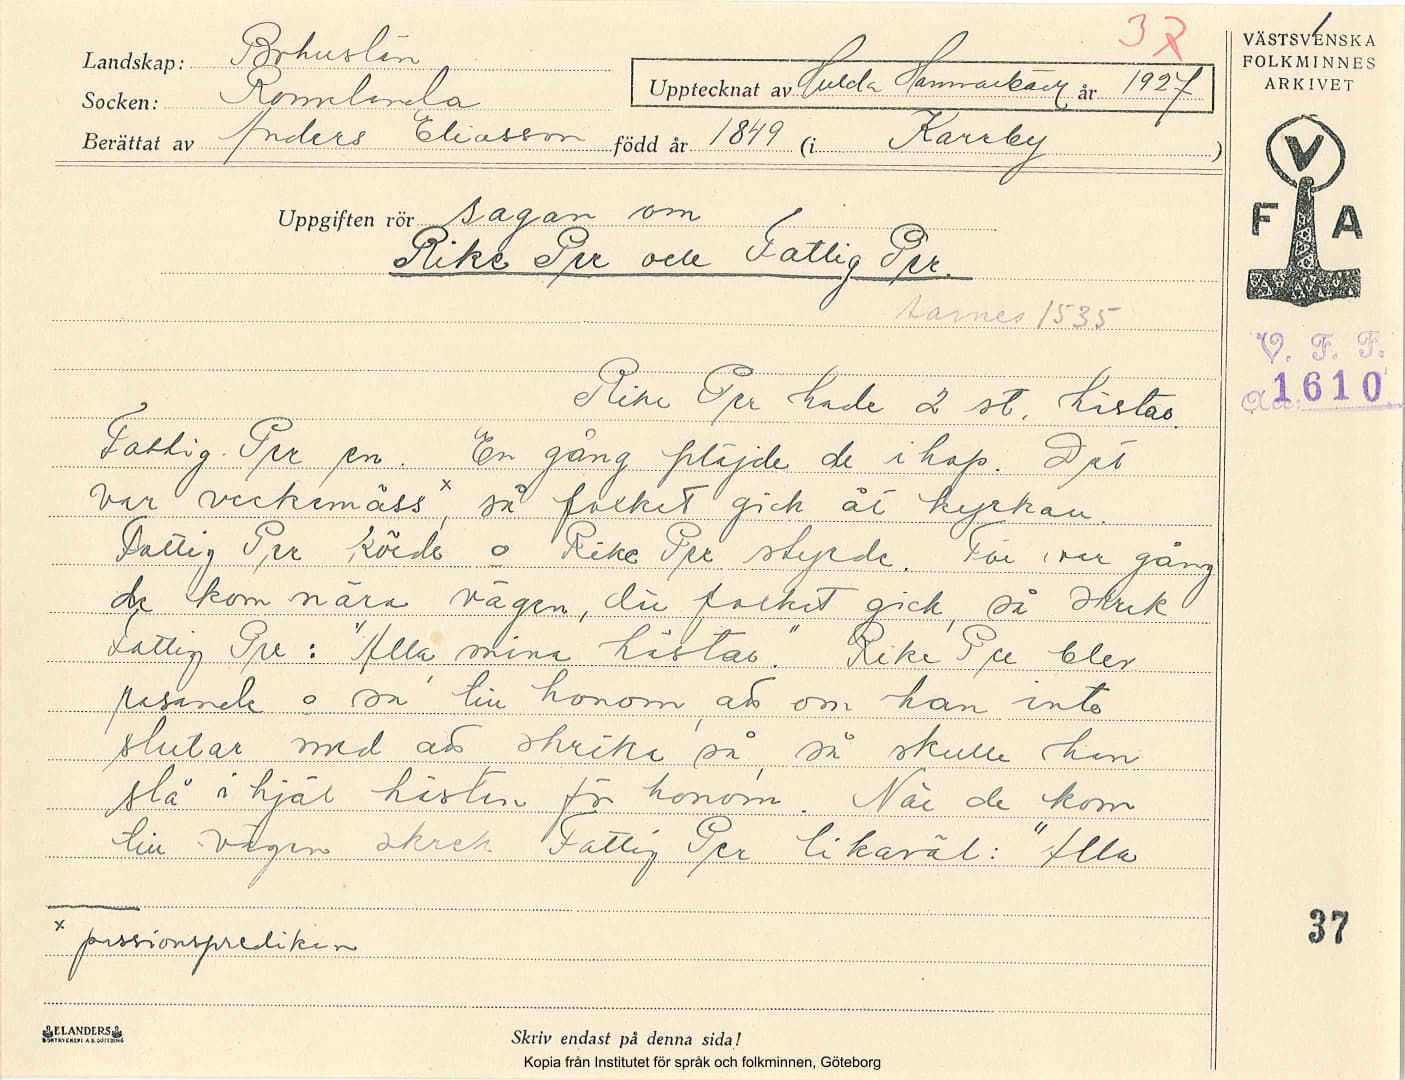 37
Landskap: Bohuslän
Socken: Romelanda
Upptecknat av Hulda Hammarbäck år 1927
Berättat av Anders Eliasson född år 1849 (i Karrby)
VÄSTSVENSKA
FOLKMINNES
ARKIVET
V
F A
Uppgiften rör sagan om
Rike Per och Fattig Per.
Aarnes 1535
V. F. F.
1610
Rike Per hade 2 st. hästar.
Fattig Per en. En gång plöjde de i hop. Det
var veckemäss x, så folket gick åt kyrkan.
Fattig Per körde o Rike Per styrde. För var gång
de kom nära vägen, där folket gick, så skrek
Fattig Per: "Alla mina hästar." Rike Per blev
rasande o sa till honom, att om han inte
slutar med att skrika så, så skulle han
slå ihjäl hästen för honom. När de kom
till vägen skrek Fattig Per likaväl: "Alla
x passionspredikan
37
ELANDERS
BOKTRYCKERI A.B. GÖTEBORG
Skriv endast på denna sida!
Kopia från Institutet för språk och folkminnen, Göteborg